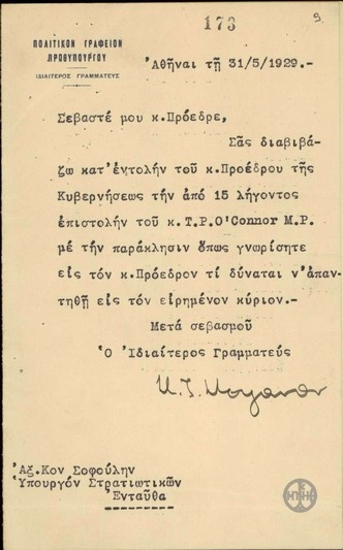 173
9.
ΠΟΛΙΤΙΚΟΝ ΓΡΑΦΕΙΟΝ
ΠΡΟΘΥΠΟΥΡΓΟΥ
ΙΔΙΑΙΤΕΡΟΣ ΓΡΑΜΜΑΤΕΥΣ
Ἀθῆναι τῇ 31/5/1929.-
Σεβαστέ μου κ.Πρόεδρε,
Σᾶς διαβιβά-
ζω κατ'ἐντολήν τοῦ κ.Προέδρου τῆς
Κυβερνήσεως τήν ἀπό 15 λήγοντος
ἐπιστολήν τοῦ κ.T.P.O'Connor M.P.
μέ τήν παράκλησιν ὅπως γνωρίσητε
εἰς τόν κ.Πρόεδρον τί δύναται ν'ἀπαν-
τηθῇ εἰς τόν εἰρημένον κύριον.-
Μετά σεβασμοῦ
Ὁ Ἰδιαίτερος Γραμματεύς
Ἀξ.Κον Σοφούλην
Ὑπουργόν Στρατιωτικῶν
Ἐνταῦθα